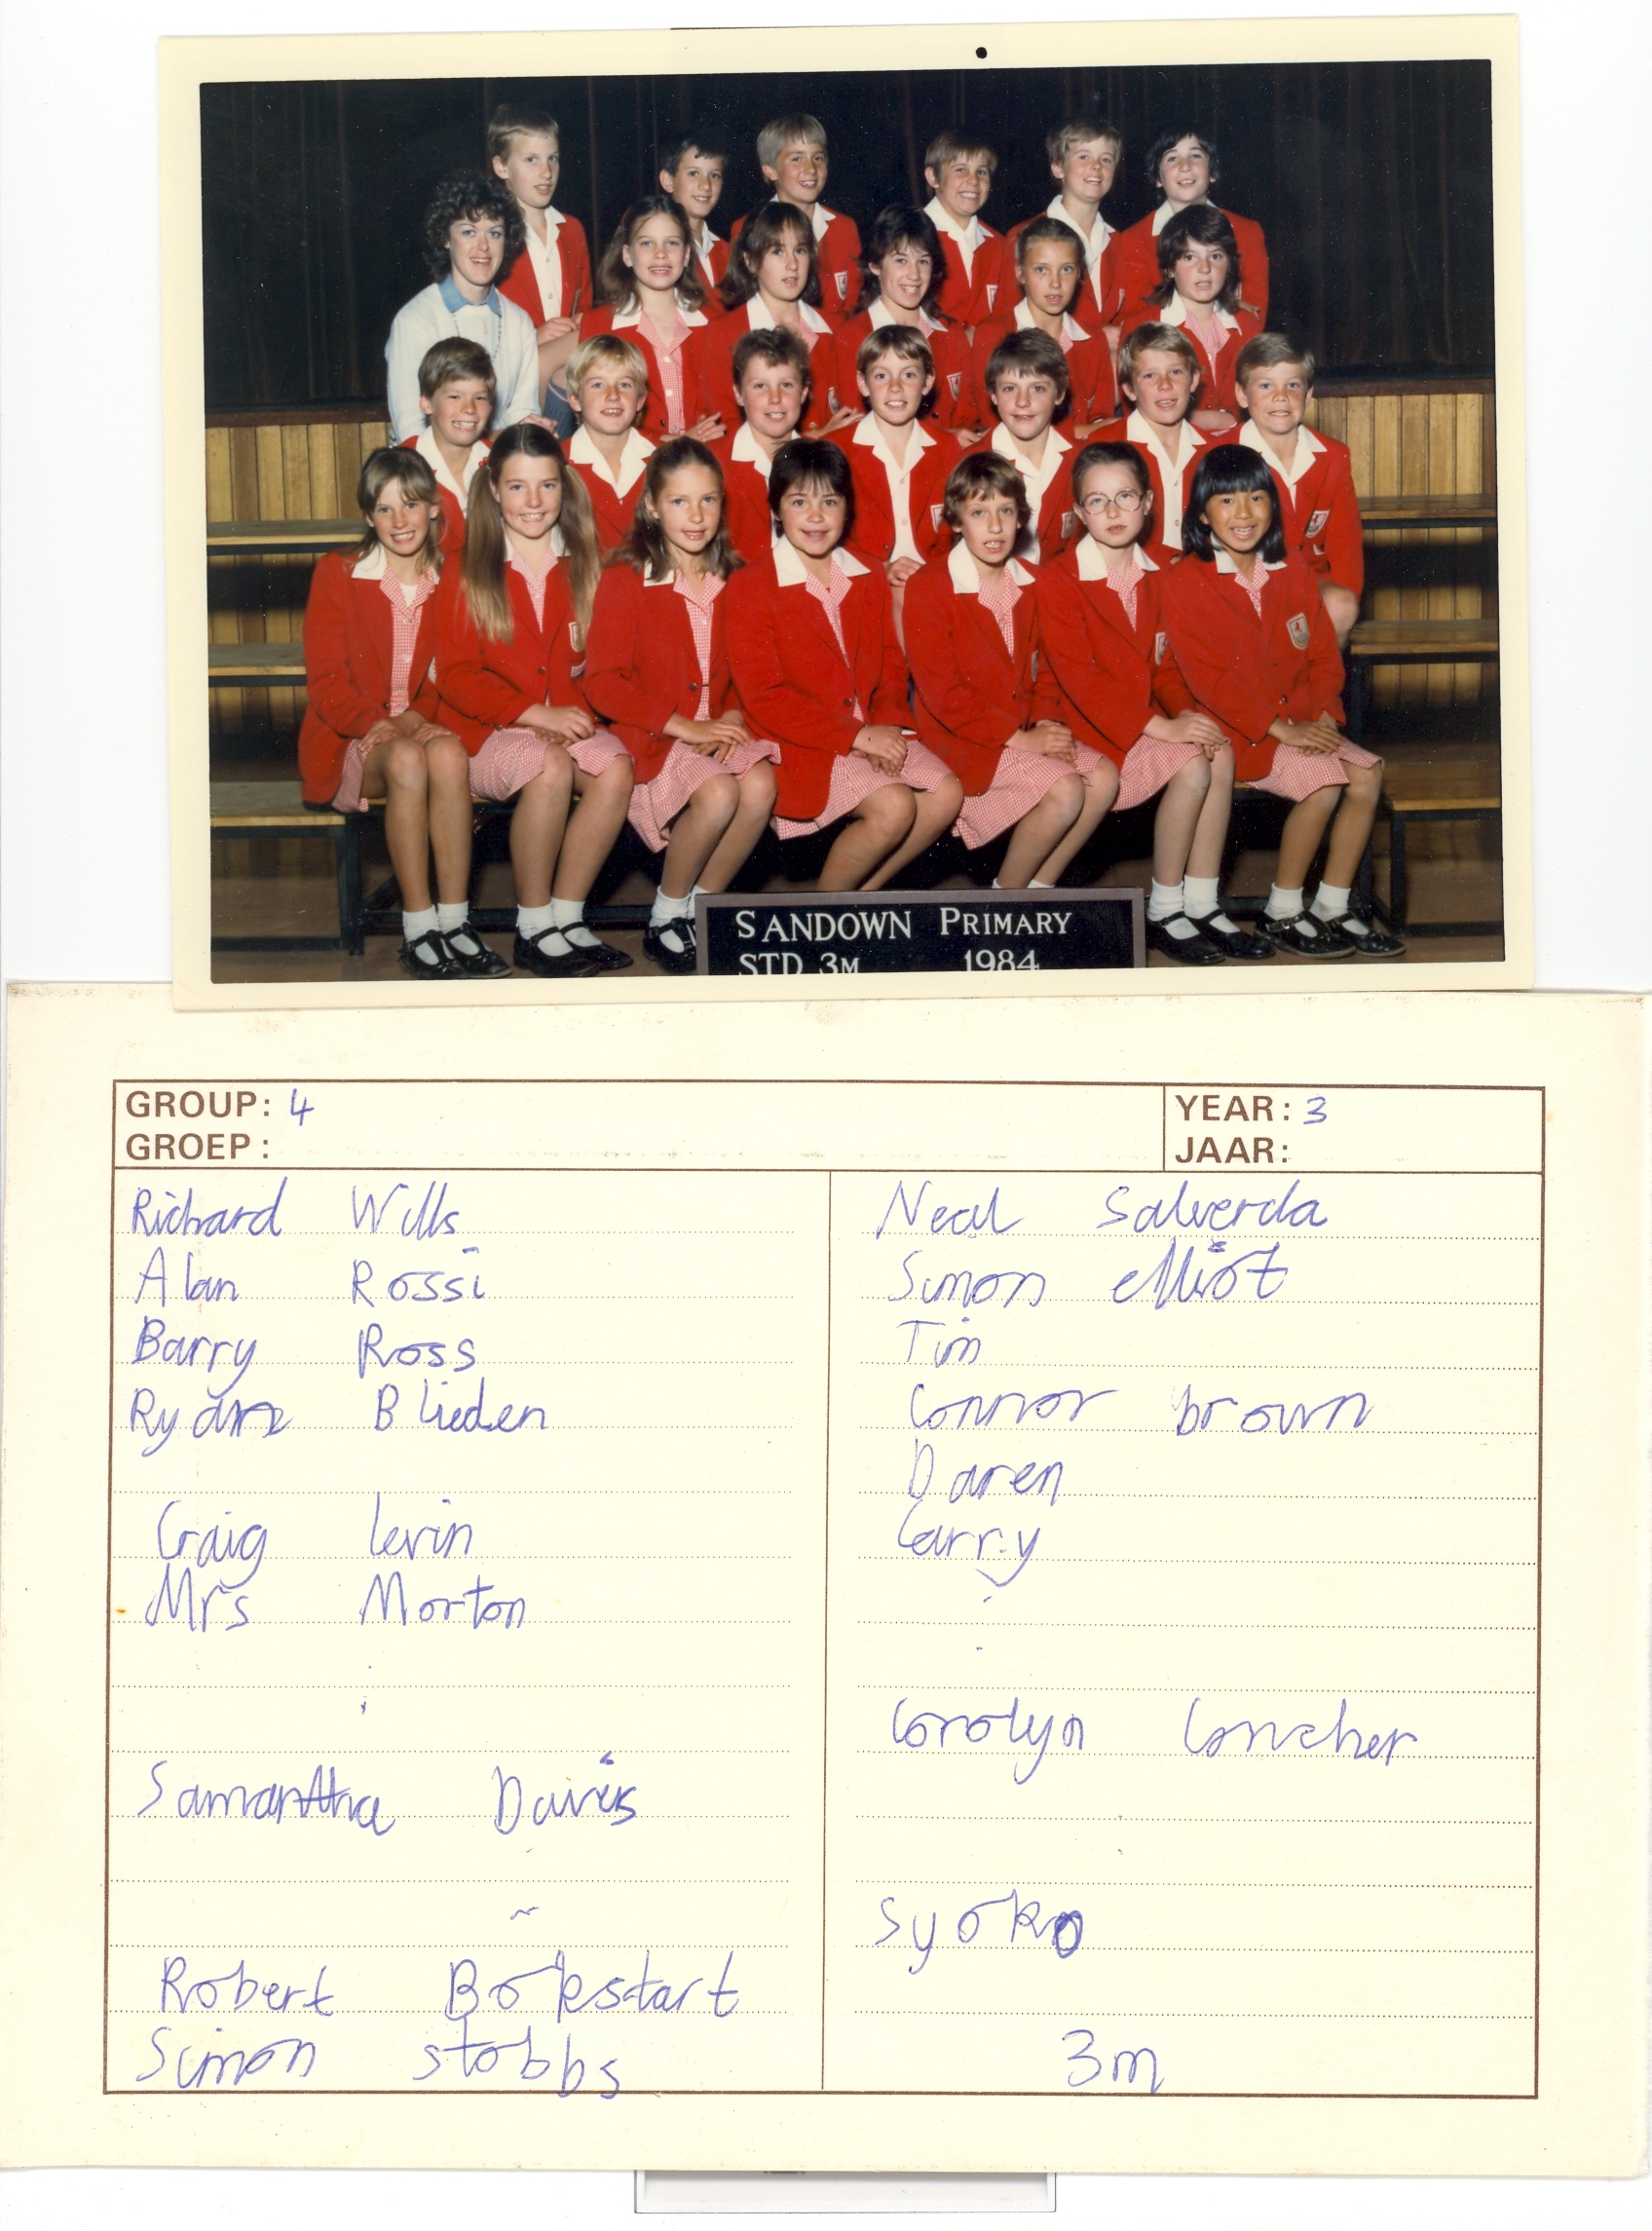 SANDOWN PRIMARY
STD 3M 1984
GROUP: 4
GROEP:
YEAR: 3
JAAR:
Richard Wills
Alan Rossi
Barry Ross
Ryan Blieden
Craig levin
Mrs Morton
Samantha Davies
Robert Bokstart
Simon stobbs
Neal Salverda
Simon elliot
Tim
Connor brown
Daren
Garry
Carolyn
Syoko
3m